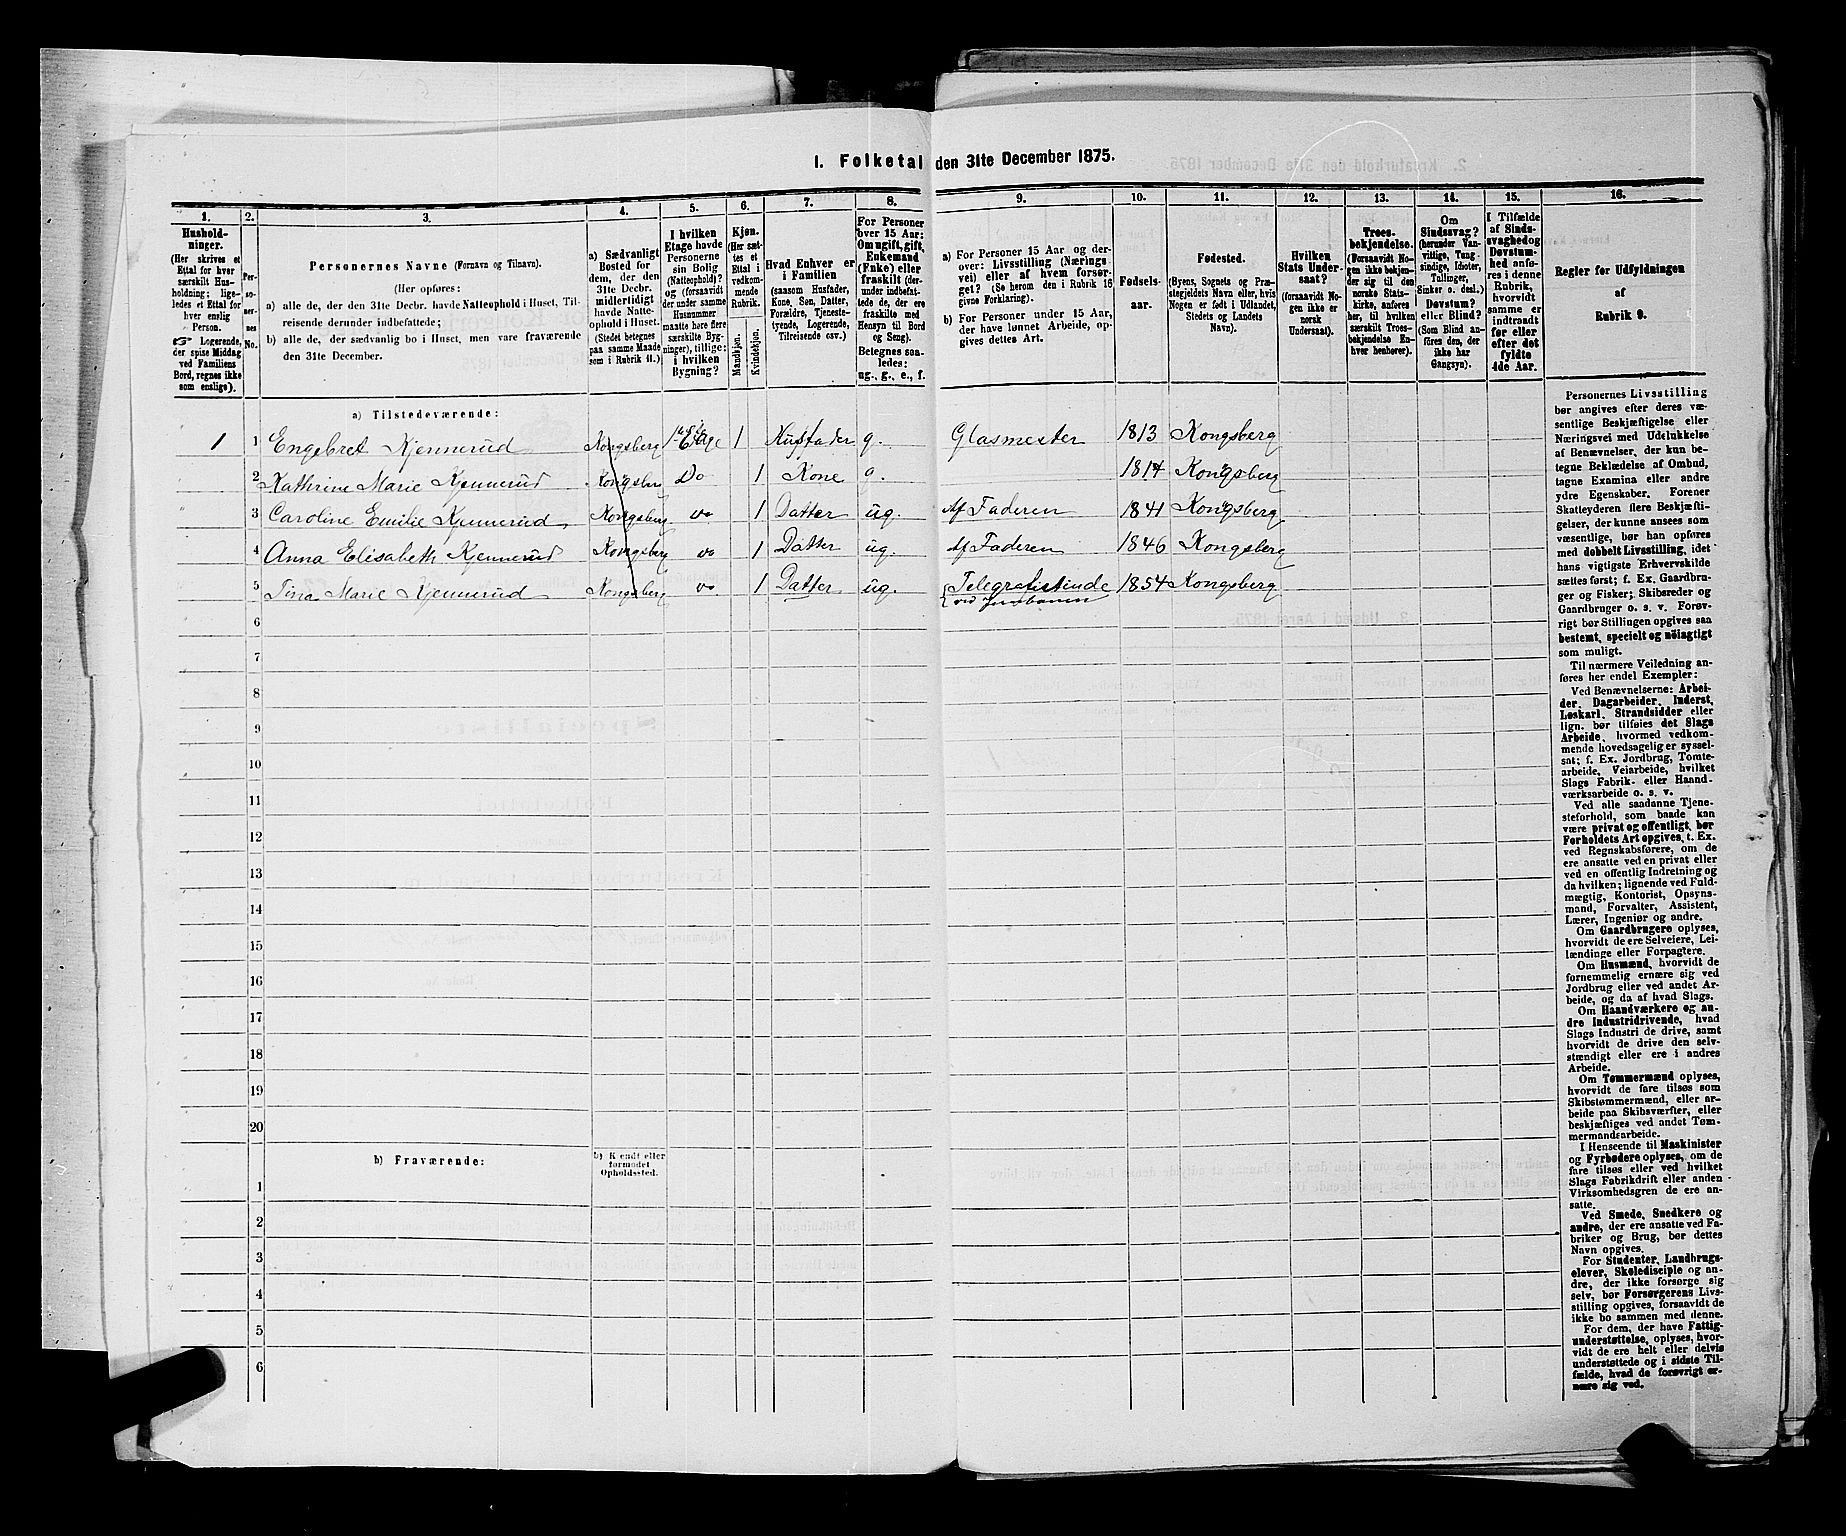 I. Folketal den 31te December 1875.
1. 2. 3. 4. 5. 6. 7. 8. 9. 10. 11. 12. 13. 14. 15. 16.
Hushold-
ninger.
(Her skrives et
Ettal for hver
særskilt Hus-
holdning; lige-
ledes et Ettal for
hver enslig
Person.
☞ Logerende,
der spise Middag
ved Familiens
Bord, regnes ikke
som enslige).
Per-
so-
ner-
nes
No.
Personernes Navne (Fornavn og Tilnavn).
(Her opføres:
a) alle de, der den 31te Decbr. havde Natteophold i Huset, Til-
reisende derunder indbefattede;
b) alle de, der sædvanlig bo i Huset, men vare fraværende
den 31te December.
a) Sædvanligt
Bosted for
dem, der den
31te Decbr.
midlertidigt
havde Natte-
ophold i Huset.
(Stedet betegnes
paa samme Maade
som i Rubrik 11.)
I hvilken
Etage havde
Personerne
sin Bolig
(Natteophold)?
og (forsaavidt
der under samme
Husnummer
maatte høre flere
særskilte Byg-
ninger), tillige:
i hvilken
Bygning?
Kjøn.
(Her sæt-
tes et
Ettal i
vedkom-
mende
Rubrik.
Mandkjøn.
Kvindekjøn.
Hvad Enhver er
i Familien
(saasom Husfader,
Kone, Søn, Datter,
Forældre, Tjeneste-
tyende, Logerende,
Tilreisende osv.).
For Personer
over 15 Aar:
Om ugift, gift,
Enkemand
(Enke) eller
fraskilt (der-
under indbefat-
tede de, der ere
fraskilte med
Hensyn til Bord
og Seng).
Betegnes saa-
ledes:
ug., g., e., f.
a) For Personer 15 Aar og der-
over: Livsstilling (Nærings-
vei) eller af hvem forsør-
get? (Se herom den i Rubrik 16
givne Forklaring).
b) For Personer under 15 Aar,
der have lønnet Arbeide, op-
gives dettes Art.
Fødsels-
aar.
Fødested.
(Byens, Sognets og Præ-
stegjeldets Navn eller, hvis
Nogen er født i Udlandet,
Stedets og Landets
Navn).
Hvilken
Stats Under-
saat?
(forsaavidt No-
gen ikke er
norsk
Undersaat).
Troes-
bekjendelse.
(Forsaavidt No-
gen ikke bekjen-
der sig til den
norske Stats-
kirke, anføres
her, til hvilken
særskilt Troes-
bekjendelse En-
hver henhører).
Om
Sindssvag?
(herunder Van-
vittige, Tung-
sindige, Idioter,
Tullinger,
Sinker o. desl.)
Døvstum?
eller Blind?
(Som Blind an-
føres den, der
ikke har
Gangsyn).
I Tilfælde
af Sinds-
svaghed og
Døvstum-
hed anfø-
res i denne
Rubrik,
hvorvidt
samme er
indtraadt
før eller
efter det
fyldte
4de Aar.
Regler for Udfyldningen
af
Rubrik 9.
a) Tilstedeværende:
1 1 Engebret Kjennerud Kongsberg 1ste Etage 1 Husfader g. Glasmester 1813 Kongsberg
2 Kathrine Marie Kjennerud Kongsberg Do 1 Kone g. 1814 Kongsberg
3 Caroline Emilie Kjennerud Kongsberg do 1 Datter ug. Af Faderen 1841 Kongsberg
4 Anna Elisabeth Kjennerud Kongsberg do 1 Datter ug. Af Faderen 1846 Kongsberg
5 Tina Marie Kjennerud Kongsberg do. 1 Datter ug. Telegrafistinde 1854 Kongsberg
ved Jernbanen
6
7
8
9
10
11
12
13
14
15
16
17
18
19
20
b) Fraværende:
b) Kjendt eller
formodet
Opholdssted.
1
2
3
4
5
6
Personernes Livsstilling
bør angives efter deres væ-
sentlige Beskjæftigelse eller
Næringsvei med Udelukkelse
af Benævnelser, der kun be-
tegne Beklædelse af Ombud,
tagne Examina eller andre
ydre Egenskaber. Forener
Skatteyderen flere Beskjæfti-
gelser, der kunne ansees som
væsentlige, bør han opføres
med dobbelt Livsstilling, idet
hans vigtigste Erhvervskilde
sættes først; f. Ex. Gaardbru-
ger og Fisker; Skibsreder og
Gaardbruger o. s. v. Forøv-
rigt bør Stillingen opgives saa
bestemt, specielt og nöiagtigt
som muligt.
Til nærmere Veiledning an-
føres her endel Exempler:
Ved Benævnelserne: Arbei-
der, Dagarbeider, Inderst,
Løskarl, Strandsidder eller
lign. bør tilføies det Slags
Arbeide, hvormed vedkom-
mende hovedsagelig er syssel-
sat; f. Ex. Jordbrug, Tomte-
arbeide, Veiarbeide, hvilket
Slags Fabrik- eller Haand-
værksarbeide o. s. v.
Ved alle saadanne Tjene-
steforhold, som baade kan
være privat og offentligt, bør
Forholdets Art opgives, t. Ex.
ved Regnskabsførere, om de
ere ansatte ved en privat eller
ved en offentlig Indretning og
da hvilken; lignende ved Fuld-
mægtig, Kontorist, Opsyns-
mand, Forvalter, Assistent,
Lærer, Ingeniør og andre.
Om Gaardbrugere oplyses,
hvorvidt de ere Selveiere, Lei-
lændinge eller Forpagtere.
Om Husmænd, hvorvidt de
fornemmelig ernære sig ved
Jordbrug eller ved andet Ar-
beide, og da af hvad Slags.
Om Haandværkere og an-
dre Industridrivende, hvad
Slags Industri de drive, samt
hvorvidt de drive den selv-
stændigt eller ere i andres
Arbeide.
Om Tømmermænd oplyses,
hvorvidt de fare tilsøs som
Skibstømmermænd, eller ar-
beide paa Skibsværfter, eller
beskjæftiges ved andet Tøm-
mermandsarbeide.
I Henseende til Maskinister
og Fyrbødere oplyses, om de
fare tilsøs eller ved hvilket
Slags Fabrikdrift eller anden
Virksomhedsgren de ere an-
satte.
Ved Smede, Snedkere og
andre, der ere ansatte ved Fa-
briker og Brug, bør dettes
Navn opgives.
For Studenter, Landbrugs-
elever, Skoledisciple og an-
dre, der ikke forsørge sig
selv, bør Forsørgerens Livs-
stilling opgives, forsaavidt de
ikke bo sammen med denne.
For dem, der have Fattig-
understøttelse, oplyses, hvor-
vidt de ere helt eller delvis
understøttede og i sidste Til-
fælde, hvad de forøvrigt er-
nære sig ved.